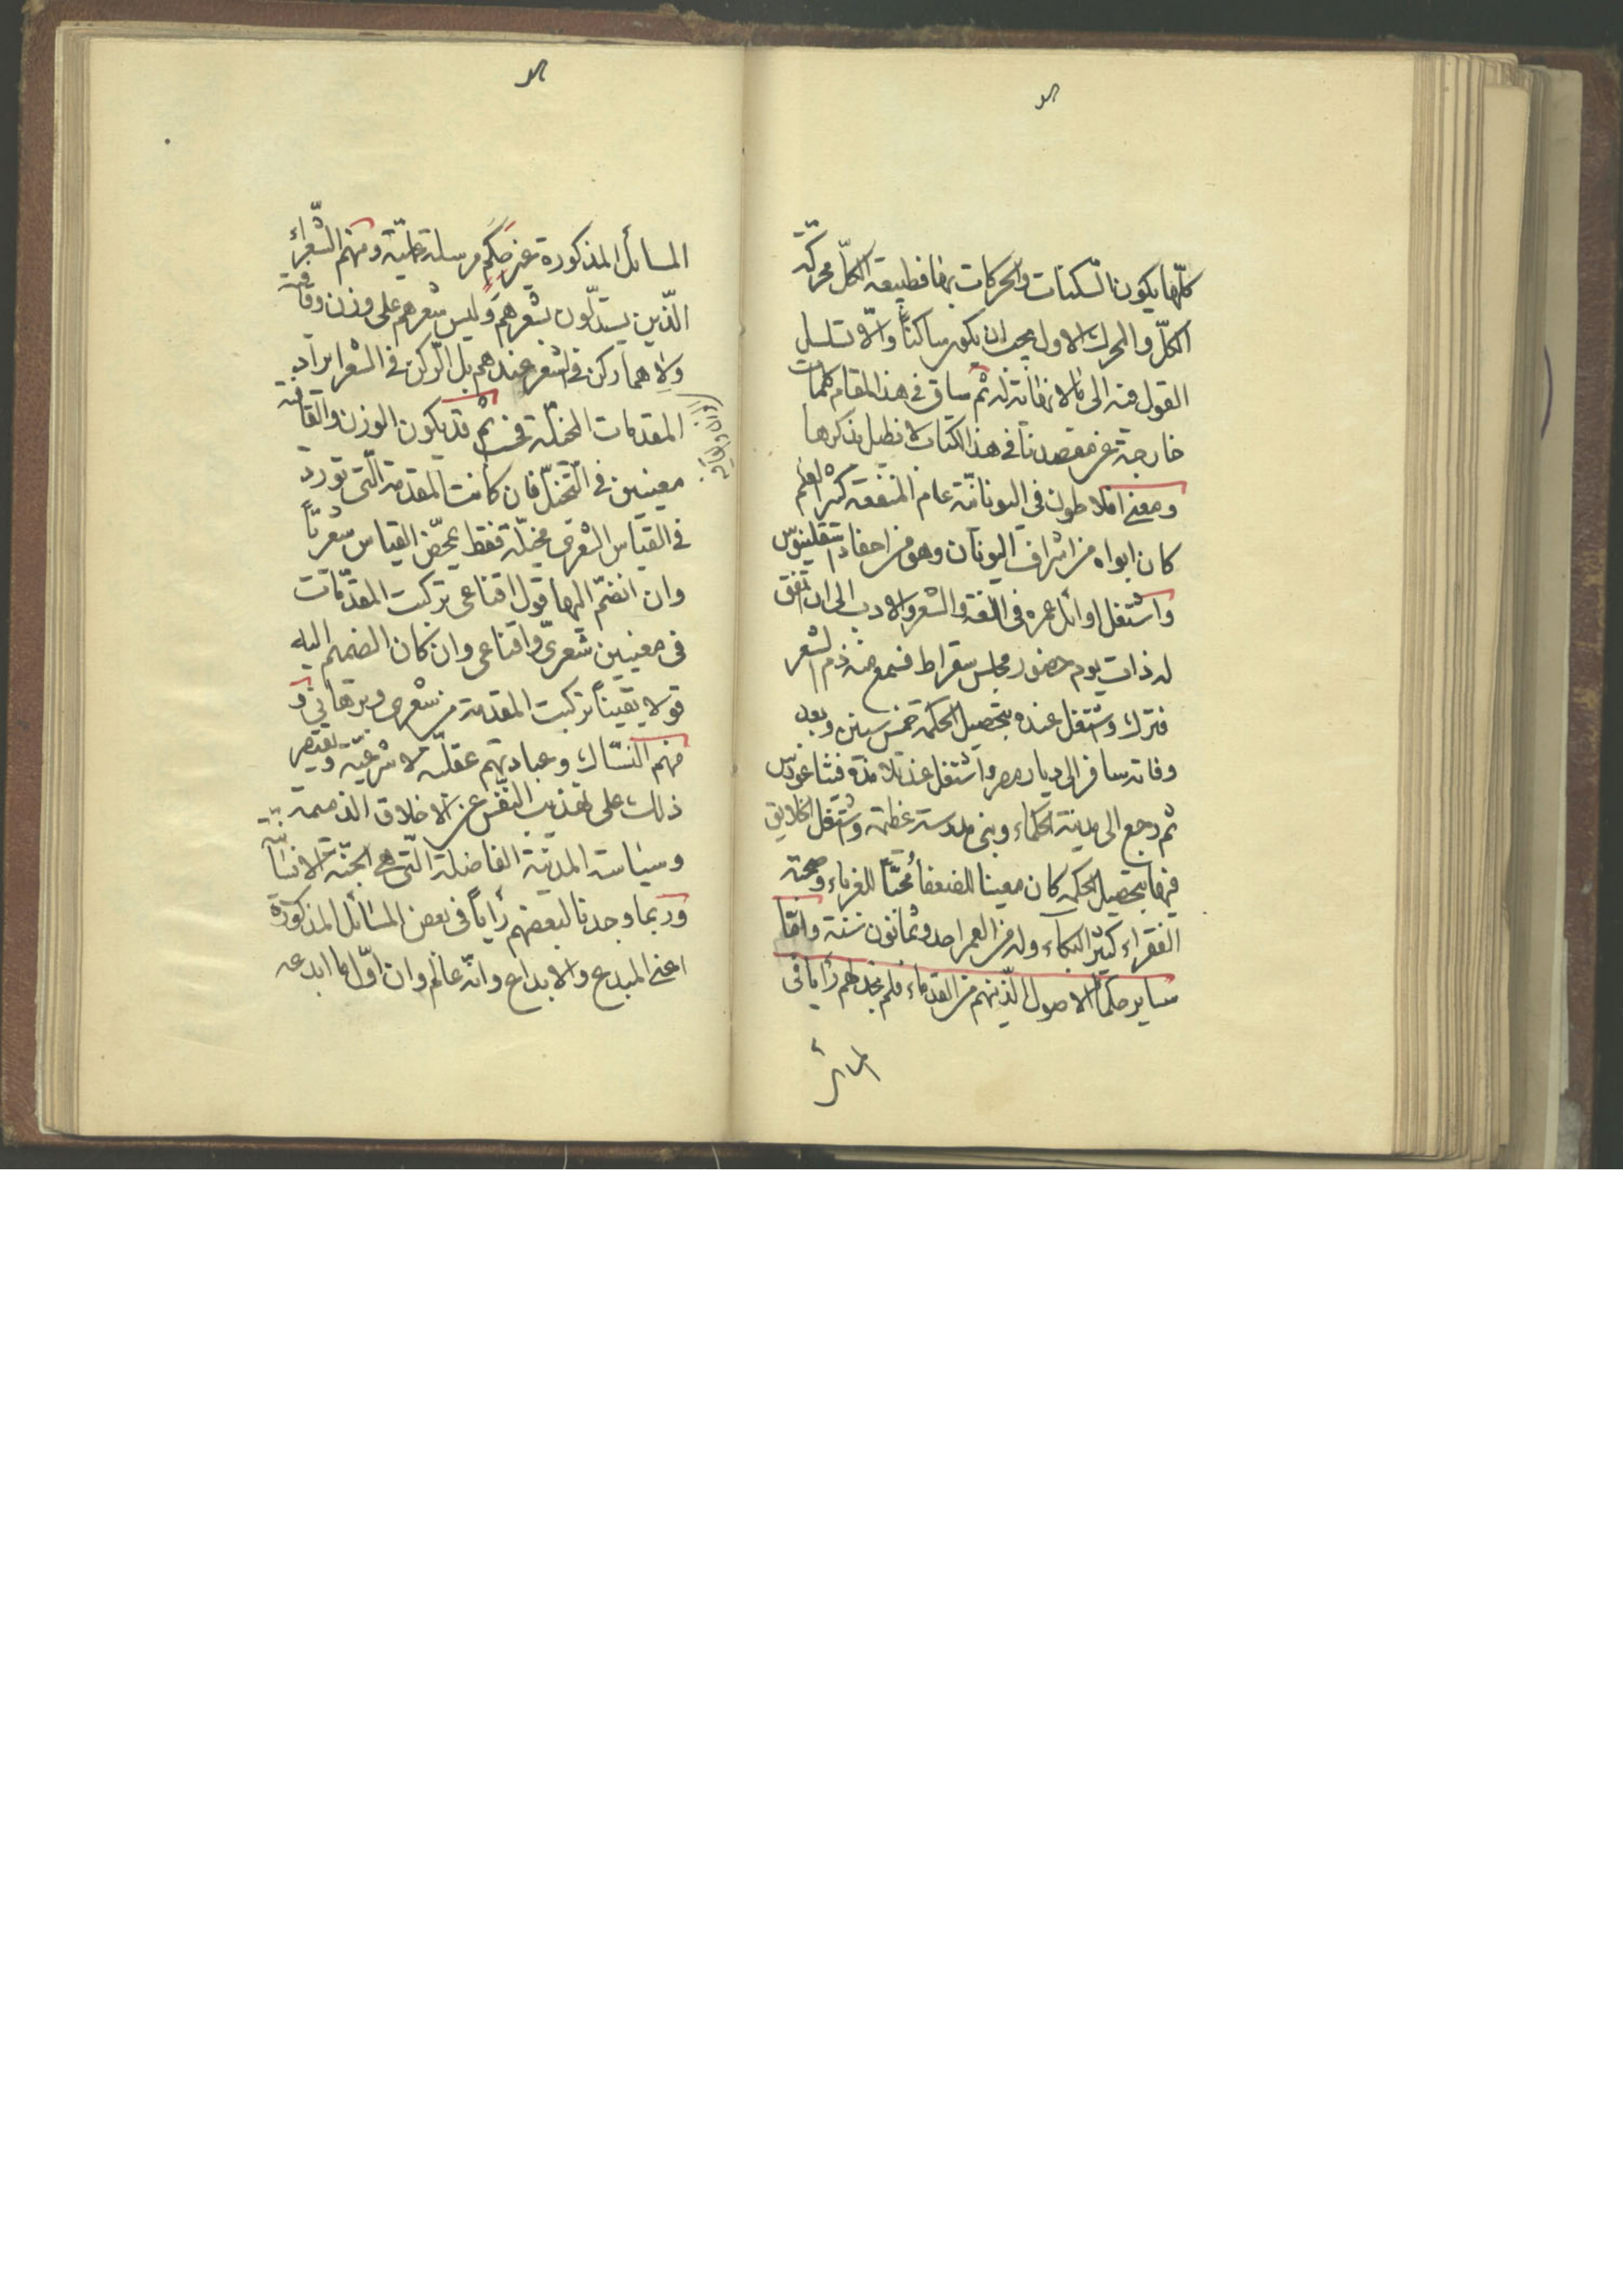 كلّها يكون السكنات والحركات بها فطبيعة الكلّ محركة
الكلّ والمحرك الاول يجب ان يكون ساكناً والّا تسلسل
القول فيه الى ما لا نهاية له ثم ساق في هذا المقام كلمات
خارجة عن مقصدنا في هذا الكتاب لا نطيل بذكرها
ومعنى افلاطون في اليونانيّة عام المنفعة كثير العلم
كان ابواه من اشراف اليونان وهو من احفاد
واشتغل اوائل عمره في اللغة والشعر والادب الى ان اتفق
له ذات يوم حضور مجلس سقراط فسمع منه ذم الشعر
فترك واشتغل عنده بتحصيل الحكمة خمس سنين وبعد
وفاته سافر الى ديار مصر واشتغل عند تلامذة فيثاغورس
ثم رجع الى مدينة الحكماء وبنى مدرسة عظيمة واشتغل الخلايق
فيها بتحصيل الحكمه كان معينا للضعفاء محبّاً للغرباء و
الفقراء كثير البكاء وله من العمر احد وثمانون سنة وامّا
ساير حكماء الاصول الذينهم من القدماء فلم نجد لهم رأيا في
المسائل
المسائل المذكورة غير حكم مرسلة عمليّة ومنهم الشّعراء
الّذين يستدلّون بشعرهم وليس شعرهم على وزن وقافية
ولا هما ركن في الشعر عندهم بل الركن في الشعر ايراد
المقدمات المخيّلة فحسب ثم قد يكون الوزن والقافية
معينين في التخيّل فان كانت المقدمة الّتي تورد
في القياس الشعري مخيّلة فقط تمحّض القياس شعريّاً
وان انضمّ اليها قول اقناعي تركبت المقدّمات
في معنيين شعريّ واقناعي وان كان الضميم اليه
قولا يقينيّاً تركبت المقدمة من شعري وبرهاني و
منهم النسّاك وعبادتهم عقليّه لا شرعيّة ويقتصر
ذلك على تهذيب النفس عن الاخلاق الذميمة
وسياسة المدينة الفاضلة الّتي هي الجثّة الانسانيّة
وربما وجدنا لبعضهم رأياً في بعض المسائل المذكورة
اعني المبدع والابداع وانّه عالم وان اوّل ما ابدعه